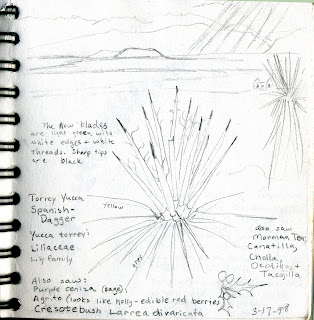 The New blades
are light green with
white edges + white
threads. Sharp tips
are black
Torrey Yucca
Spanish-
Dagger
Yucca torreyi
Liliaceae
Lily family
Yellow
grey
also saw
Mormon Tea,
Canatilla,
Cholla,
Ocotillo, +
Tasajilla
Also saw:
Purple ceniza (sage),
Agrito (looks like holly-edible red berries
Creosotebush Larrea divaricata
3-17-98